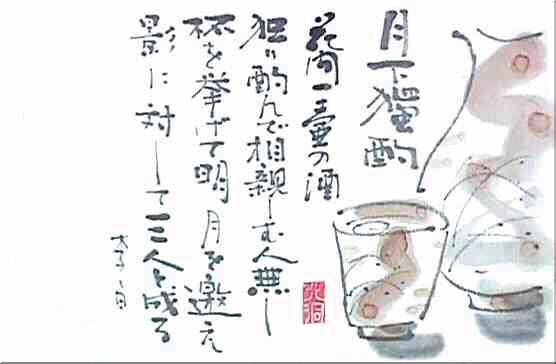 月下獨酌
花間一壷の酒
独り酌んで相親しむ人無し
杯を挙げて明月を邀え
影に対して三人と成る
李白